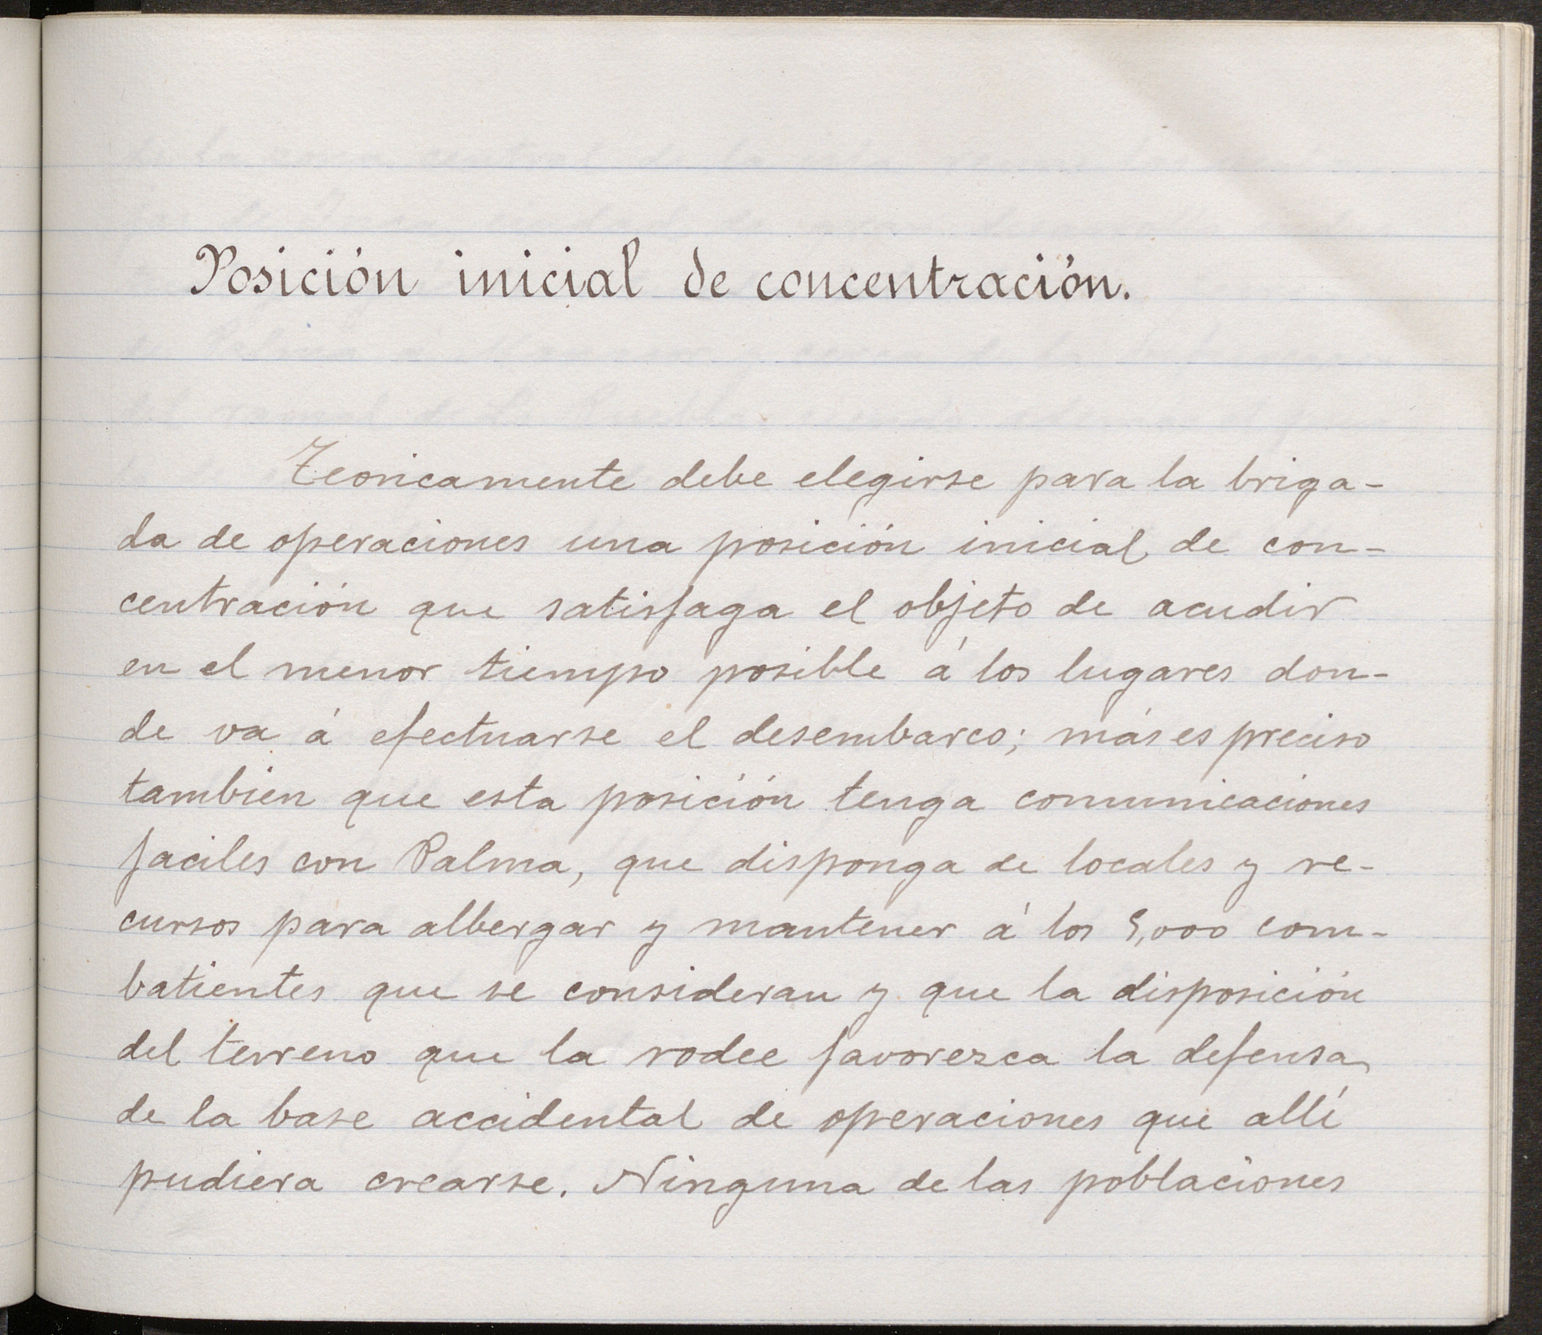 Posición inicial de concentración.
Teoricamente debe elegirse para la briga-
da de operaciones una posición inicial de con-
centración que satisfaga el objeto de acudir
en el menor tiempo posible á los lugares don-
de va á efectuarse el desembarco; más es preciso
tambien que esta posición tenga comunicaciones
faciles con Palma, que disponga de locales y re-
cursos para albergar y mantener á los 5,000 com-
batientes que se consideran y que la disposición
del terreno que la rodee favorezca la defensa
de la base accidental de operaciones que allí
pudiera crearse. Ninguna de las poblaciones